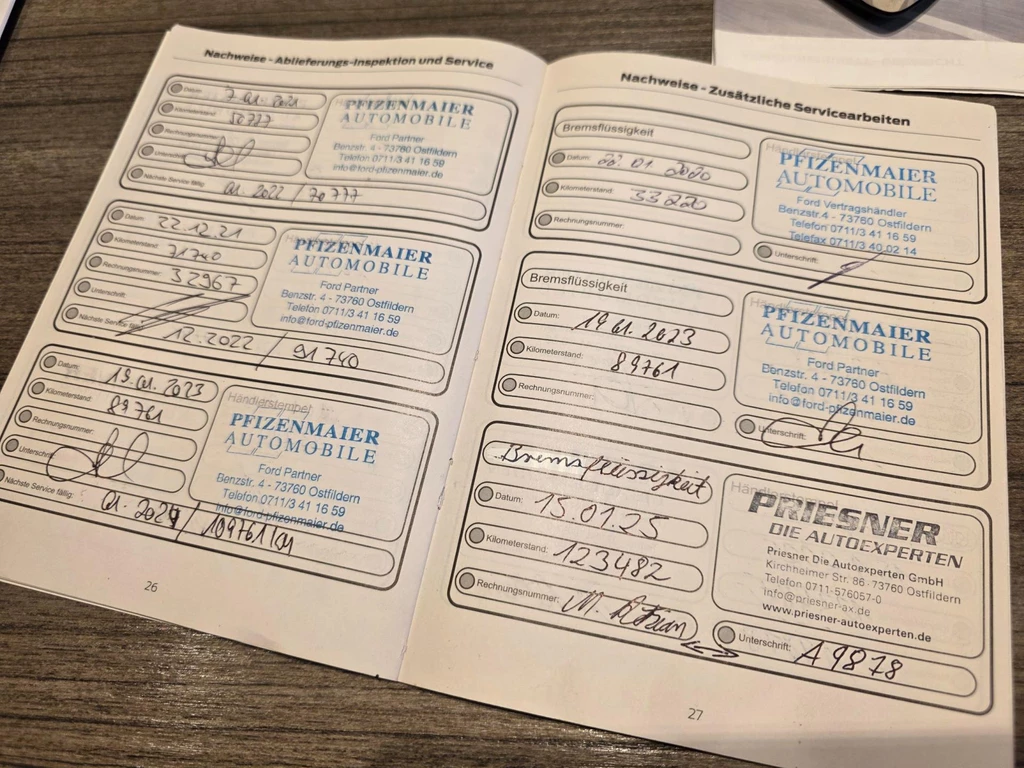 Nachweise - Ablieferungs-Inspektion und Service
Datum: 7.01.2021
Kilometerstand: 50777
Rechnungsnummer:
Unterschrift:
Nächste Service fällig: 01.2022 / 70777
PFIZENMAIER
AUTOMOBILE
Ford Partner
Benzstr. 4 - 73760 Ostfildern
Telefon 0711/3 41 16 59
info@ford-pfizenmaier.de
Datum: 22.12.21
Kilometerstand: 71740
Rechnungsnummer: 32967
Unterschrift:
Nächste Service fällig: 12.2022 / 91740
PFIZENMAIER
AUTOMOBILE
Ford Partner
Benzstr. 4 - 73760 Ostfildern
Telefon 0711/3 41 16 59
info@ford-pfizenmaier.de
Datum: 19.01.2023
Kilometerstand: 89761
Rechnungsnummer:
Unterschrift:
Nächste Service fällig: 01.2024 / 109761
Händlerstempel
PFIZENMAIER
AUTOMOBILE
Ford Partner
Benzstr. 4 - 73760 Ostfildern
Telefon 0711/3 41 16 59
info@ford-pfizenmaier.de
26
Nachweise - Zusätzliche Servicearbeiten
Bremsflüssigkeit
Datum: 22.01.2020
Kilometerstand: 33220
Rechnungsnummer:
Händlerstempel
PFIZENMAIER
AUTOMOBILE
Ford Vertragshändler
Benzstr. 4 - 73760 Ostfildern
Telefon 0711/3 41 16 59
Telefax 0711/3 40 02 14
Unterschrift:
Bremsflüssigkeit
Datum: 19.01.2023
Kilometerstand: 89761
Rechnungsnummer:
Händlerstempel
PFIZENMAIER
AUTOMOBILE
Ford Partner
Benzstr. 4 - 73760 Ostfildern
Telefon 0711/3 41 16 59
info@ford-pfizenmaier.de
Unterschrift:
Bremsflüssigkeit
Datum: 15.01.25
Kilometerstand: 123482
Rechnungsnummer: M.
Händlerstempel
PRIESNER
DIE AUTOEXPERTEN
Priesner Die Autoexperten GmbH
Kirchheimer Str. 86 · 73760 Ostfildern
Telefon 0711-576057-0
info@priesner-ax.de
www.priesner-autoexperten.de
Unterschrift: A9878
27